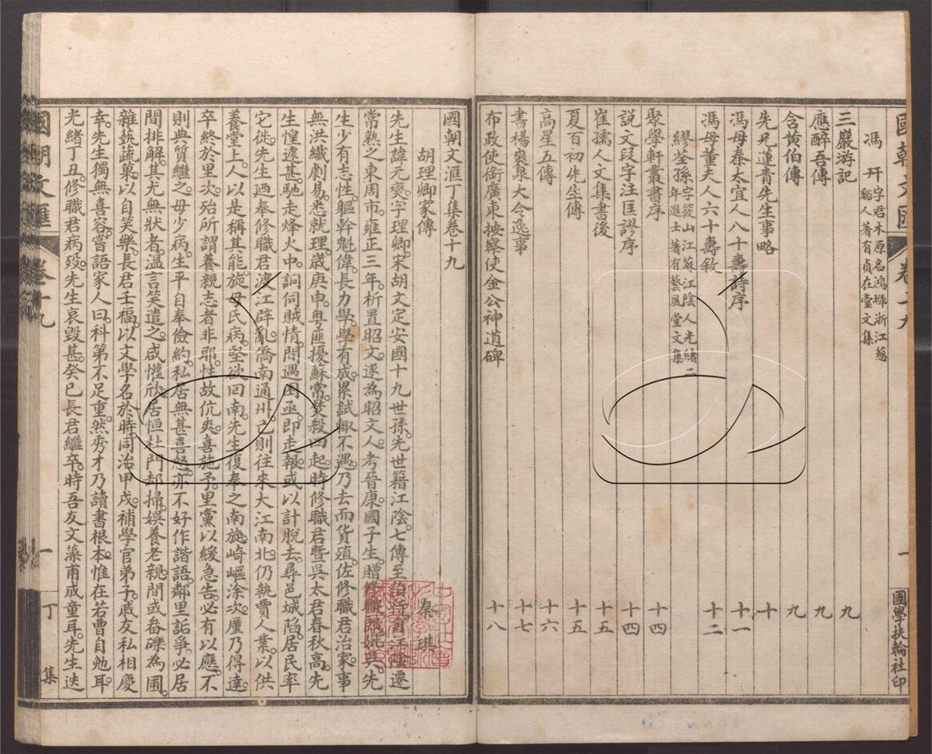 國朝文匯 卷十九 一 國學扶輪社印
馮 幵 字君木原名鴻墀浙江慈谿人著有貞在堂文集
三巖游記 九
應醉吾傳 九
含黃伯傳 九
先兄蓮青先生事略 十
馮母秦太宜人八十壽詩序 十一
馮母董夫人六十壽敘 十二
繆荃孫 字筱山江蘇江陰人光緒二年進士著有藝風堂文集
聚學軒叢書序 十四
說文段字注匡謬序 十四
崔孺人文集書後 十五
夏百初先生傳 十五
高星五傳 十六
書楊襲泉大令逸事 十七
布政使銜廣東按察使金公神道碑 十八
國朝文滙丁集卷十九
胡理卿家傳 秦 琪
先生諱元燮字理卿宋胡文定安國十九世孫先世籍江陰七傳至
常熟之東周市雍正三年析置昭文遂為昭文人考晉康國子生贈修職
生少有志性軀幹魁偉長力學學有成累試輙不遇乃去而貨殖佐修職君治家事
無洪纖劇易悉就理歲庚申粵匪擾蘇常焚殺四起時修職君暨吳太君春秋高先
生惶遽甚馳走烽火中詗伺賊情間遇困亟即走報或以計脫去尋邑城陷居民率
它徙先生迺奉修職君渡江辟亂僑南通州己則往來大江南北仍執賈人業以供
養堂上人以是稱其能旋母氏病堅欲回南先生復奉之南旋崎嶇涂次廑乃得達
卒終於里次殆所謂養親志者非耶性故伉爽喜施予里黨以緩急告必有以應不
則典質繼之毋少病生平自奉儉約私居無甚喜怒亦不好作諧語鄰里詬爭必居
間排解其尤無狀者溫言笑遣之咸懽欣居恒杜門却掃娛養老親間或畚礫為圃
雜蓺蔬菓以自笑樂長君壬福以文學名於時同治甲戌補學官弟子戚友私相慶
幸先生獨無喜容嘗語家人曰科第不足重然秀才乃讀書根本惟在若曹自勉耳
光緒丁丑修職君病歿先生哀毀甚癸巳長君繼卒時吾友文藻甫成童耳先生迭
國朝文匯 卷十九 一 丁集